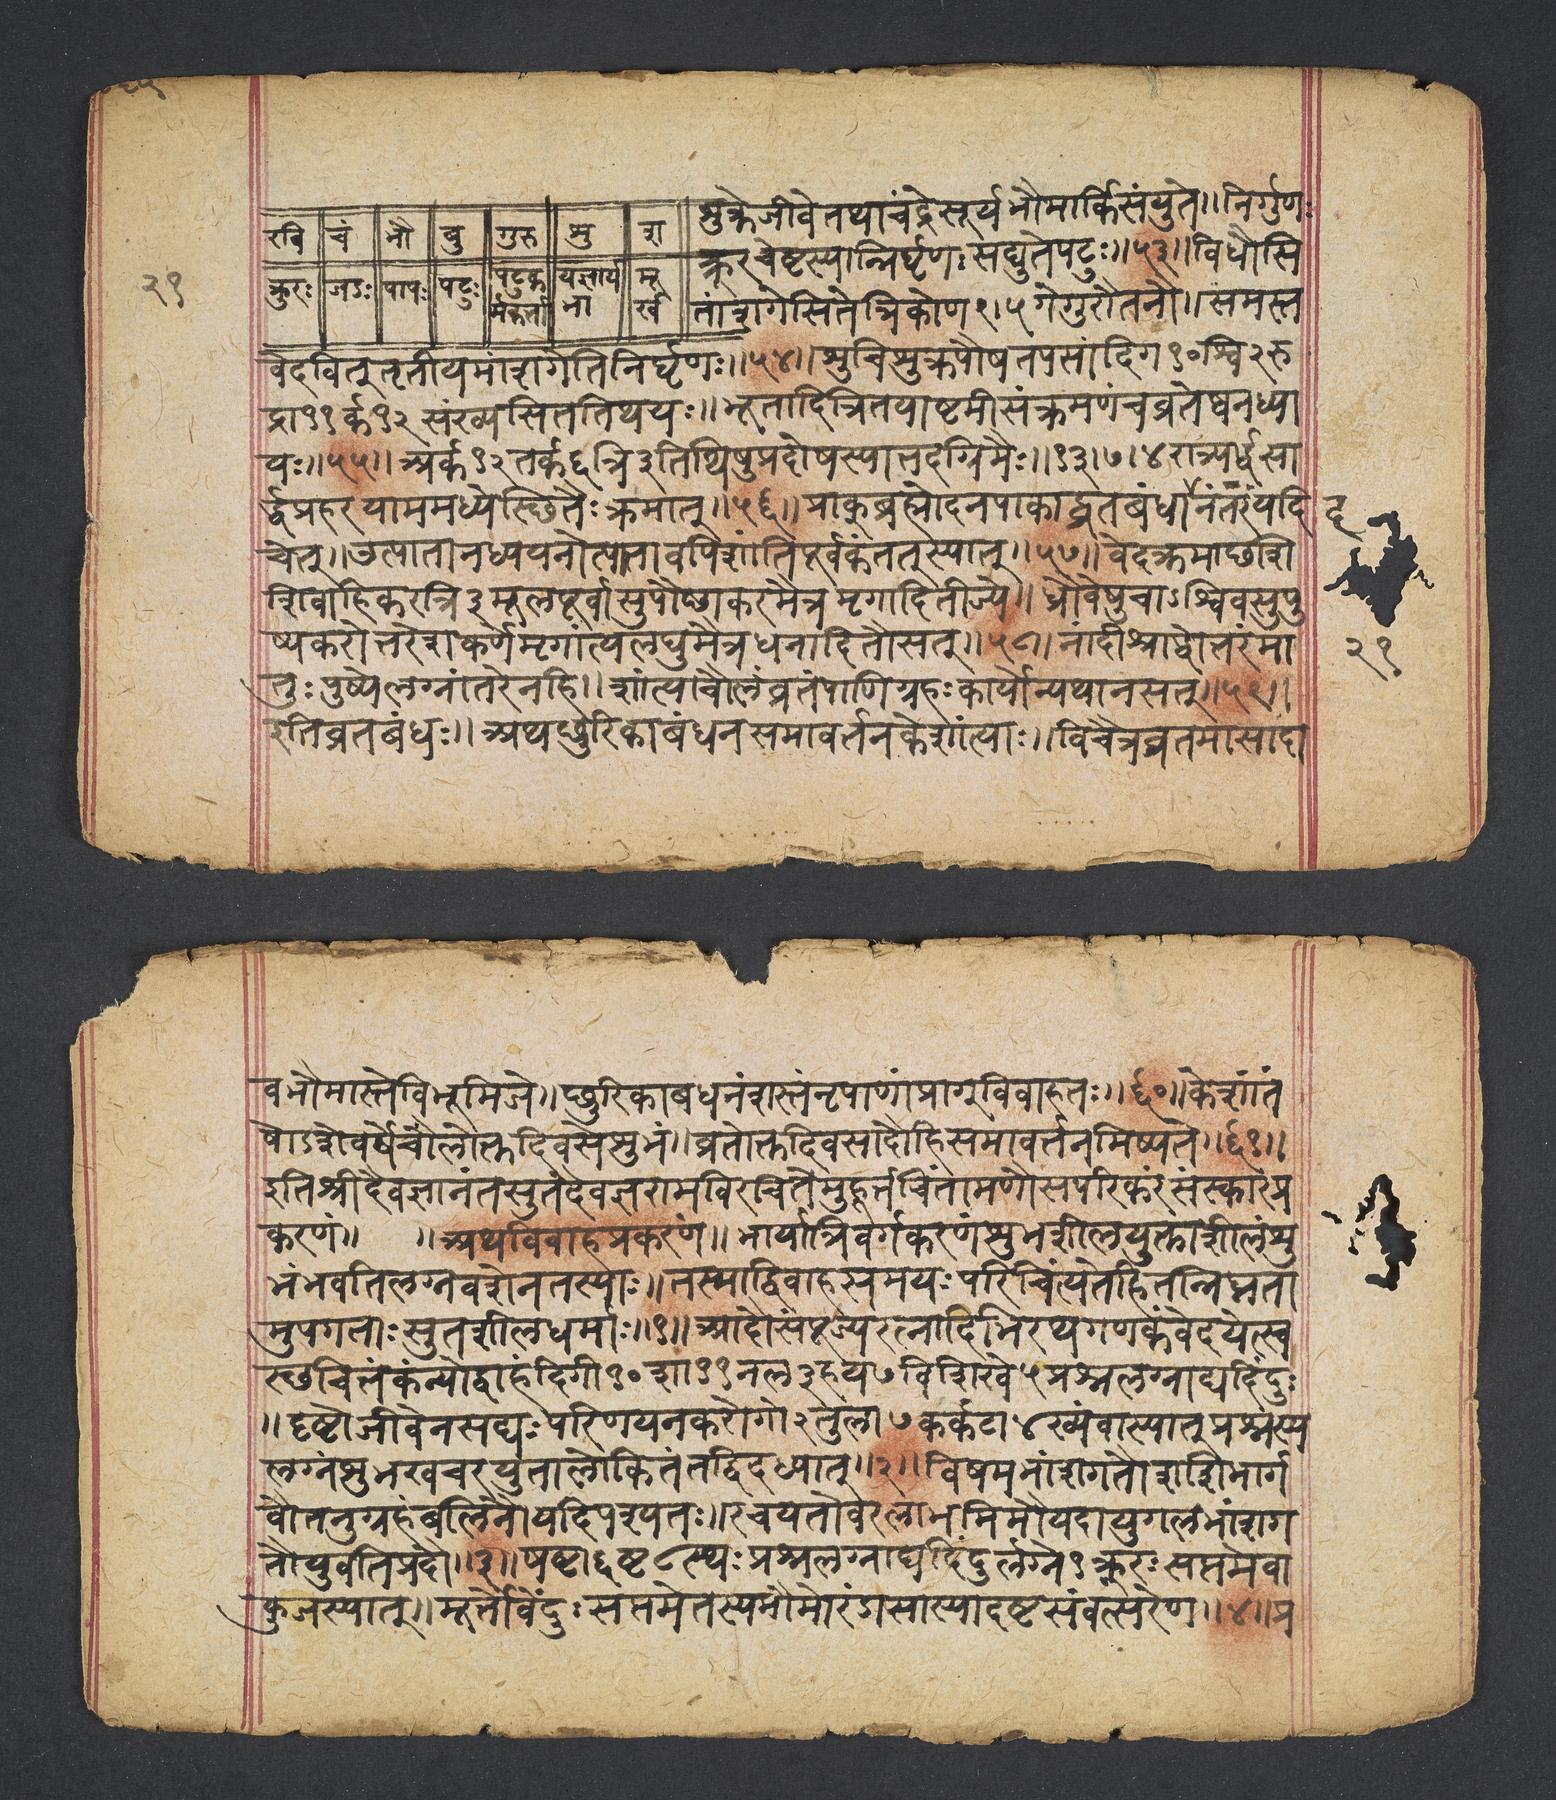 २९
रवि चं भौ बु गुरु शु श
क्रुरः जडः पापः पटुः षटुक र्मकर्ता यज्ञार्थ भा मू र्ख
शुक्रेजीवेतथाचंद्रेसूर्यभौमार्किसंयुते॥निर्गुणः
क्रूरचेष्टस्यान्निर्घृणःसद्युतेपटुः॥५३॥विधौसि
तांशगेसितेत्रिकोण९।५गेगुरौतनौ॥समस्त
वेदवित्तृतीयमांशगेतिनिर्घृणः॥५४॥शुचिशुक्रपौषतपसांदिग१०श्वि२रु
द्रा११र्क१२संख्यसिततिथयः॥भूतादित्रितयाष्टमीसंक्रमणंचव्रतेष्वनध्या
यः॥५५॥अर्क१२तर्क६त्रि३तिथिषुप्रदोषस्यात्तदग्रिमैः॥१३।७।४रात्र्यर्धसा
र्द्धप्रहरयाममध्येस्छितैःक्रमात्॥५६॥प्राक्ब्रह्मोदनपाकाद्व्रतबंधानंतरंयदि
चेत्॥उत्पातानध्ययनोत्पातावपिशांतिपूर्वकंतत्स्यात्॥५७॥वेदक्रमाछशि
शिवाहिकरत्रि३मूलपूर्वासुपौष्णकरमैत्रमृगादितीज्ये॥ध्रौवेषुचाऽश्विवसुपु
ष्यकरोत्तरेशकर्णेमृगांत्यलघुमैत्रधनादितौसत्॥५८॥नांदीश्राद्धोत्तरंमा
तुःपुष्पेलग्नांतरेनहि॥शांत्याचौलंव्रतंपाणिग्रहःकार्योन्यथानसत्॥५९॥
इतिव्रतबंधः॥अथछुरिकाबंधनसमावर्तनकेशांत्याः॥विचैत्रव्रतमासादौ
२९
वभौमास्तेविभूमिजे॥छुरिकाबधनंशस्तंनृपाणांप्राग्विवाहतः॥६०॥केशांतं
षोऽशेवर्षेचौलोक्तदिवसेशुभं॥व्रतोक्तदिवसादौहिसमावर्तनमिष्यते॥६१॥
इतिश्रीदैवज्ञानंतसुतदैवज्ञरामविरचितेमुहूर्त्तचिंतामणौसपरिकरंसंस्कारप्र
करणं॥ ॥अथविवाहप्रकरणं॥भार्यात्रिवर्गकरणंशुभशीलयुक्ताशीलंशु
भंभवतिलग्नवशेनतस्याः॥तस्माद्विवाहसमयःपरिचिंत्यतेहितन्निघ्नता
मुपगताःसुतशीलधर्माः॥१॥आदौसंपूज्यरत्नादिभिरथगणकंवेदयेत्स्व
स्छचित्तंकंन्योद्वाहंदिगी१०शा११नल३हय७विशिखे५प्रश्नलग्नाद्यदिंदुः
॥दृष्टोजीवेनसद्यःपरिणयनकरोगो२तुला७कर्कटा४ख्यंवास्यात्प्रश्नस्य
लग्नंशुभखचरयुतालोकितंतद्विदध्यात्॥२॥विषमभांशगतौशशिभार्ग
वौतनुगृहंबलिनौयदिपश्यतः॥रचयतोवरलाभमिमौयदायुगलभांशग
तौयुवतिप्रदौ॥३॥षष्टाद्दष्ट८स्थःप्रश्नलग्नाद्यदिंदुर्लग्ने१क्रूरःसप्तमेवा
कुजस्यात्॥मूर्त्तौविंदुःसप्तमेतस्यभौमोरंडासास्यादष्टसंवत्सरेण॥४॥प्र